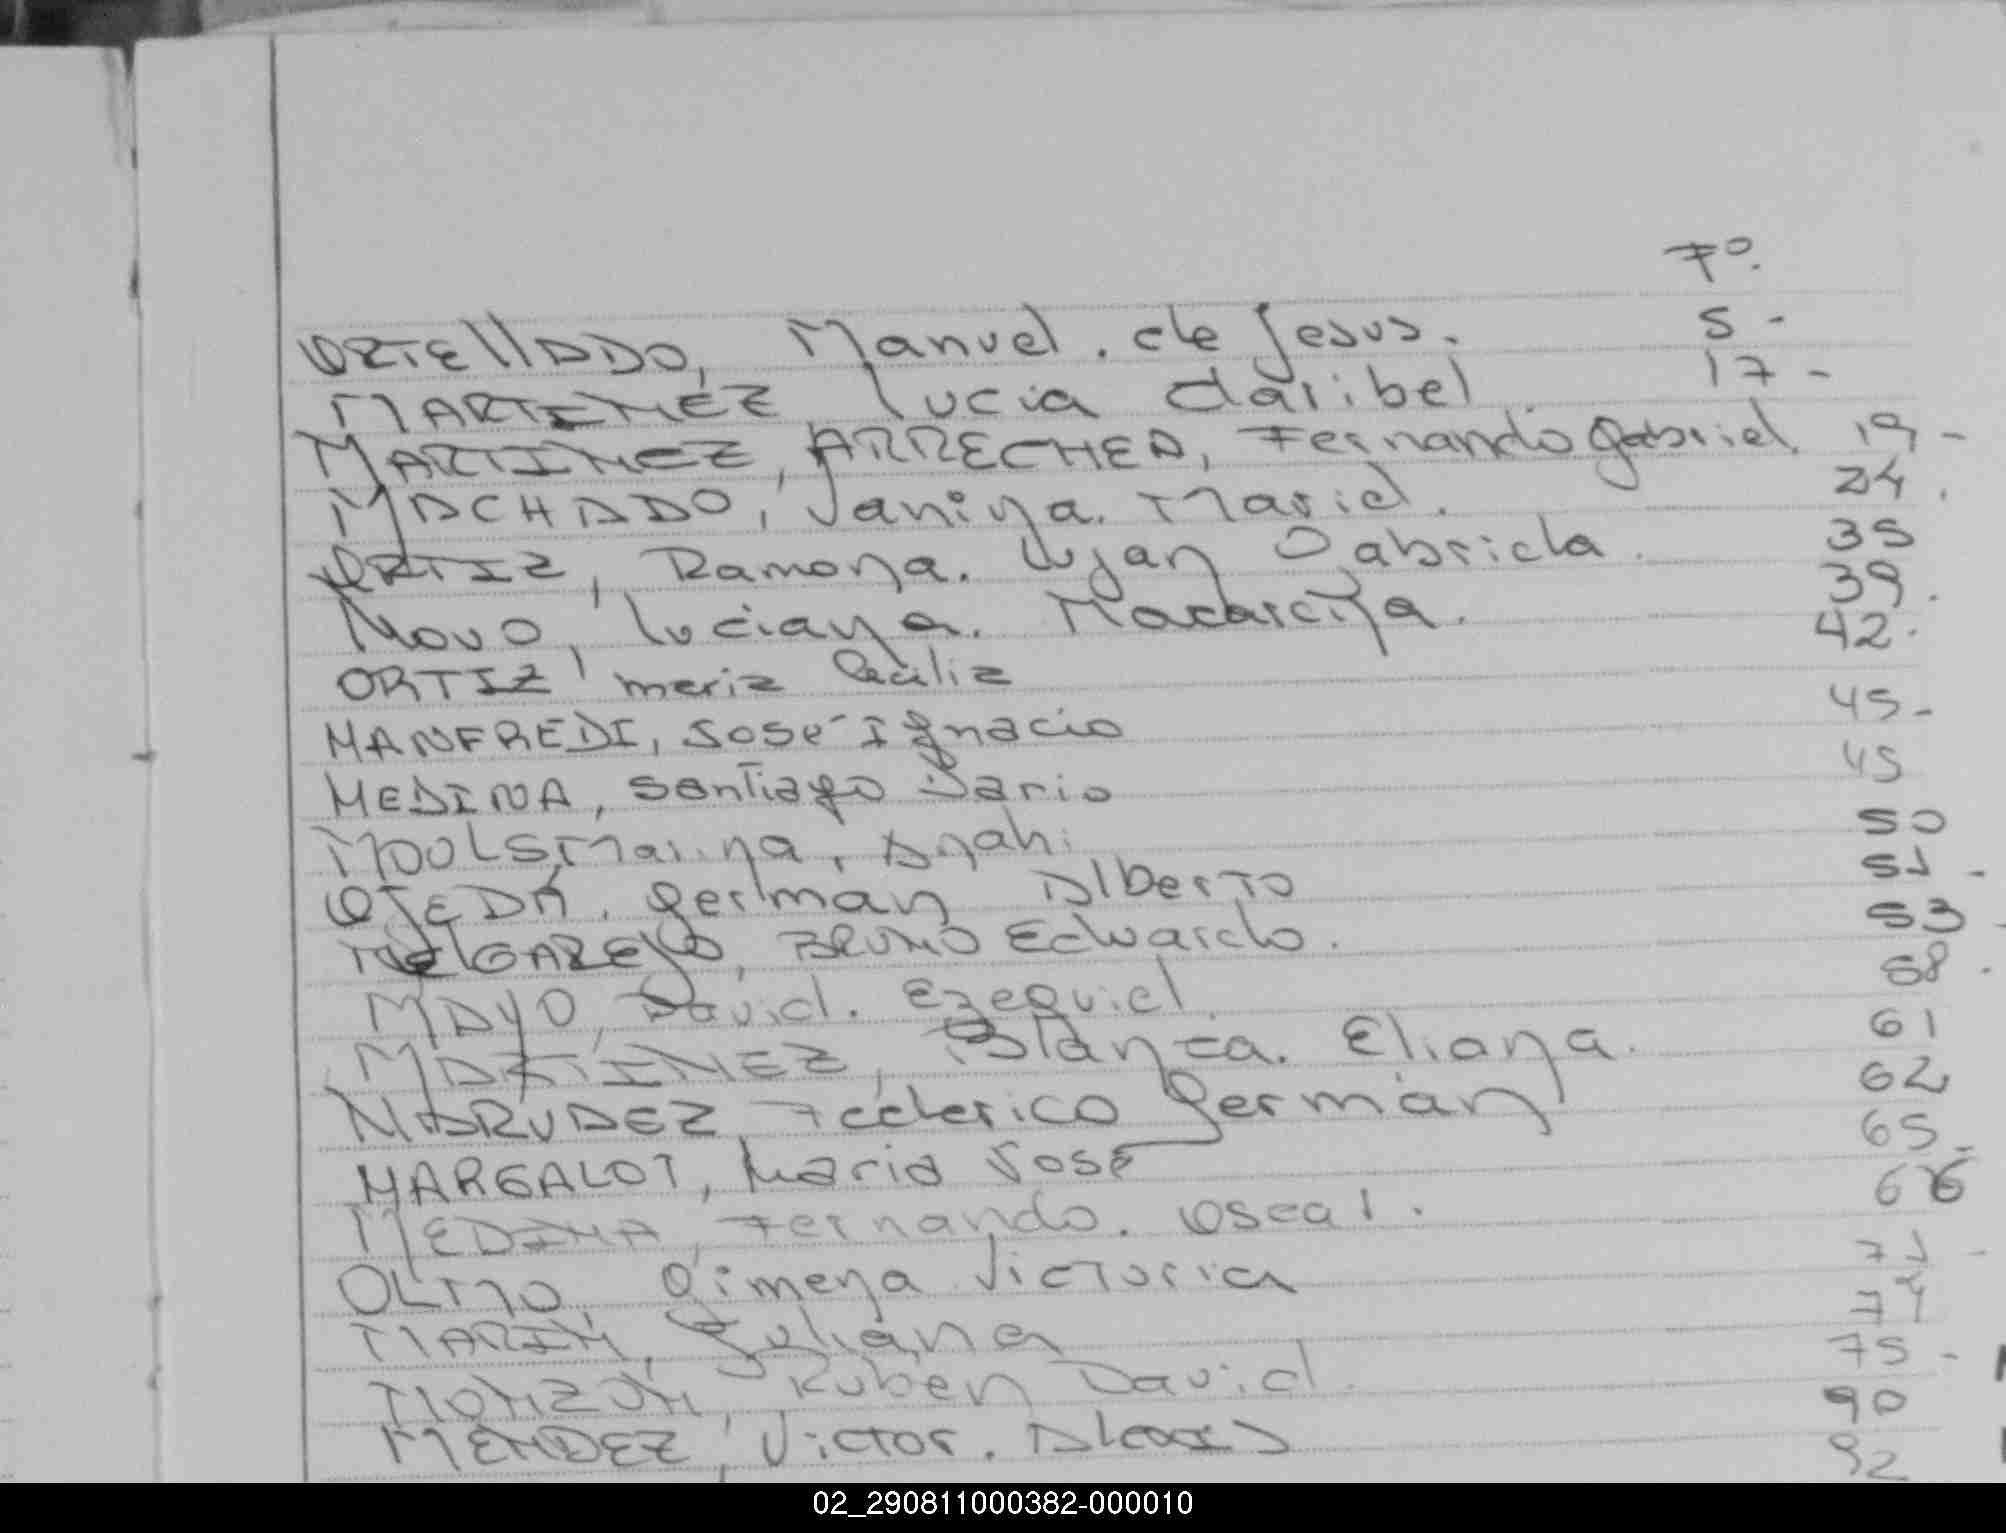 Fº.
ORTELLADO, Manuel. de Jesus. 5 -
MARTINEZ Lucia Claribel 17 -
MARTINEZ, ARRECHEA, Fernando Gabriel. 19 -
MACHADO, Janina. Mariel. 24.
ORTIZ, Ramona. Lujan Gabriela. 35
NOVO, Luciana. Macarena. 39.
ORTIZ, Maria Cecilia 42.
MANFREDI, José Ignacio 45 -
MEDINA, Santiago Dario 45
MOOLS, Marina, Anahi 50
OJEDA, German Alberto 51 -
MELGAREJO, BRUNO Eduardo. 53
MAYO, David. Ezequiel. 58.
MARTINEZ, Blanca. Eliana. 61
NARVAEZ Federico German 62
MARGALOT, Maria José 65 -
MEDINA, Fernando. Oscar. 66
OLMO, Gimena Victoria 71 -
MARIN, Juliana 74
MONZON, Ruben David. 75 -
MENDEZ, Victor. 90
92
02_290811000382-000010